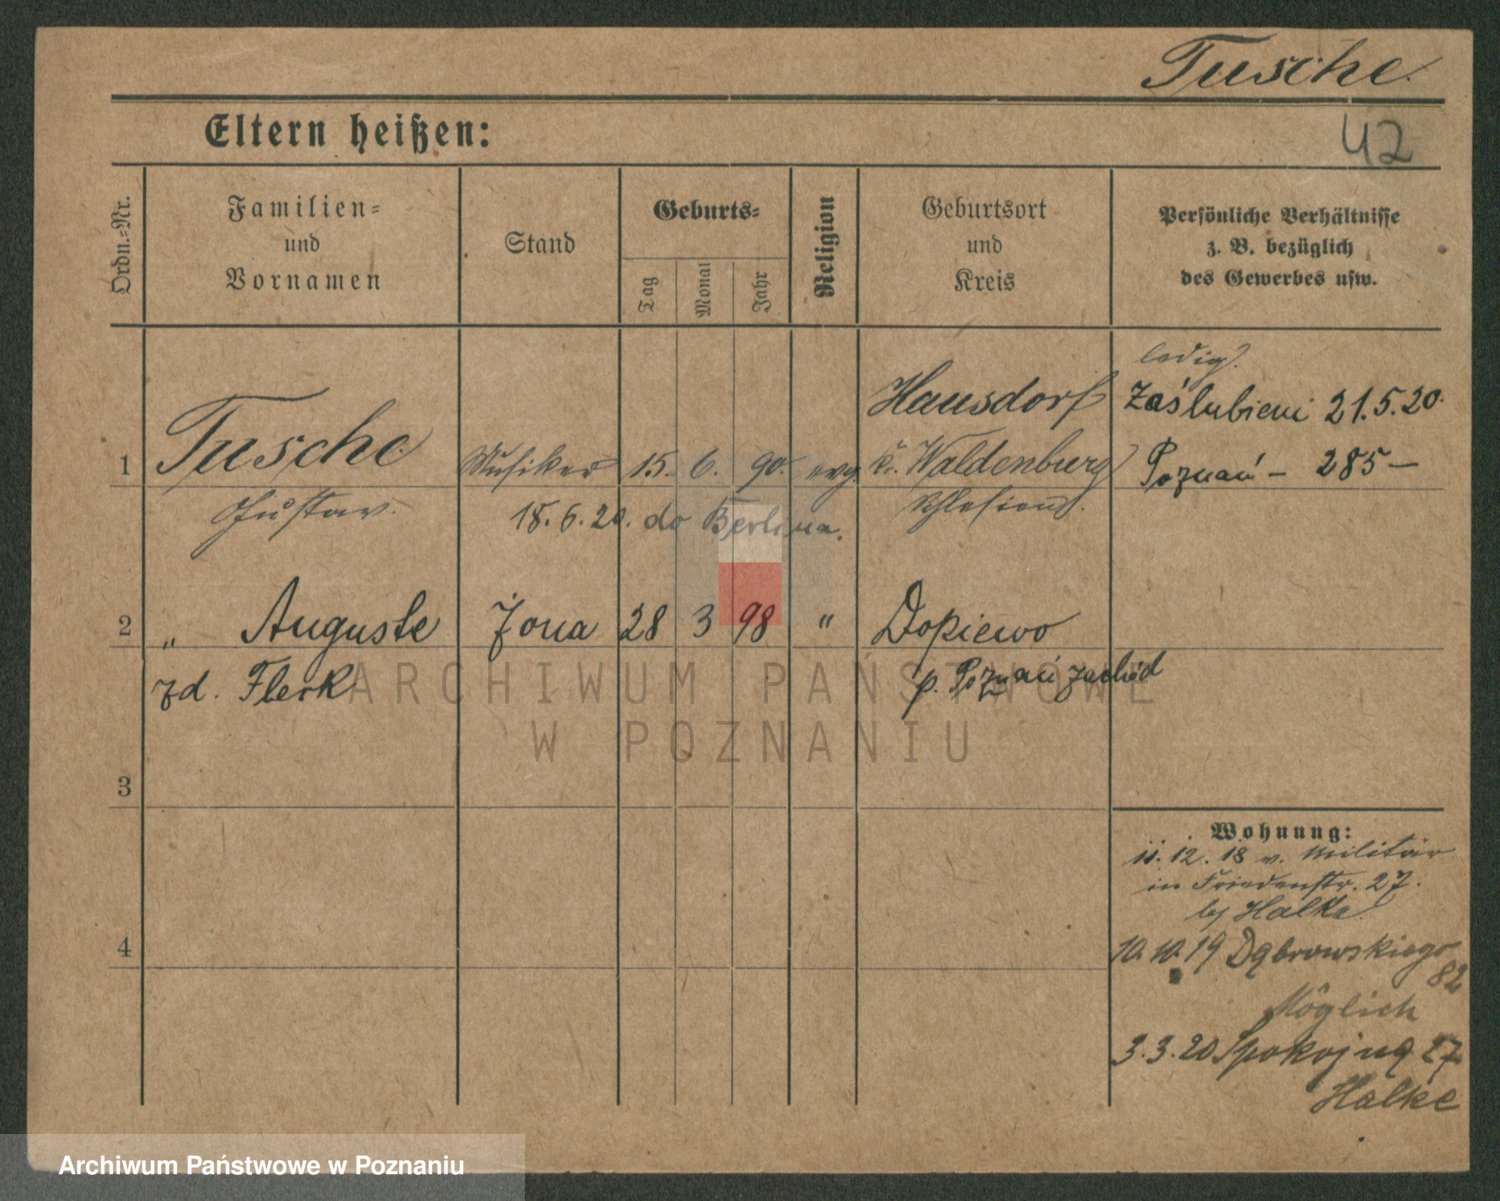 Tusche.
Eltern heißen:
42
Ordn.-Nr.
Familien-
und
Vornamen
Stand
Geburts-
Tag
Monat
Jahr
Religion
Geburtsort
und
Kreis
Persönliche Verhältnisse
z. B. bezüglich
des Gewerbes usw.
ledig.
Hausdorf
Zaślubieni 21.5.20.
1 Tusche Musiker 15. 6. 90. evg. Kr. Waldenburg
Poznań – 285 –
Gustav. 18.6.20. do Berlina. Schlesien.
2 " Auguste żona 28 3 98 " Dopiewo
zd. Flerk p. Poznań zachód
3
4
Wohnung:
11.12.18 v. Militär
in Friedenstr. 27.
bei Halke.
10.10.19 Dąbrowskiego
82
Möglich
3.3.20 Spokojna 27
Halke
ARCHIWUM PAŃSTWOWE
W POZNANIU
Archiwum Państwowe w Poznaniu